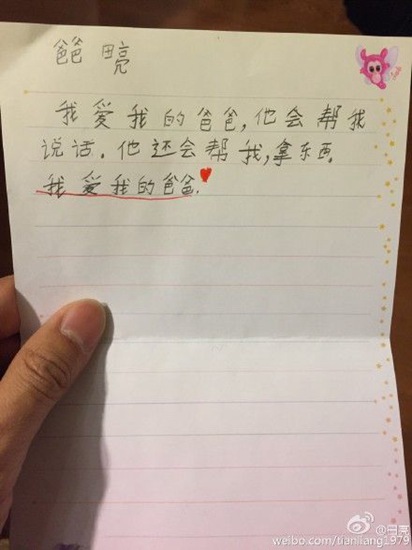 爸爸 田亮
我爱我的爸爸,他会帮我
说话.他还会帮我,拿东西.
我爱我的爸爸.
@田亮
weibo.com/tianliang1979